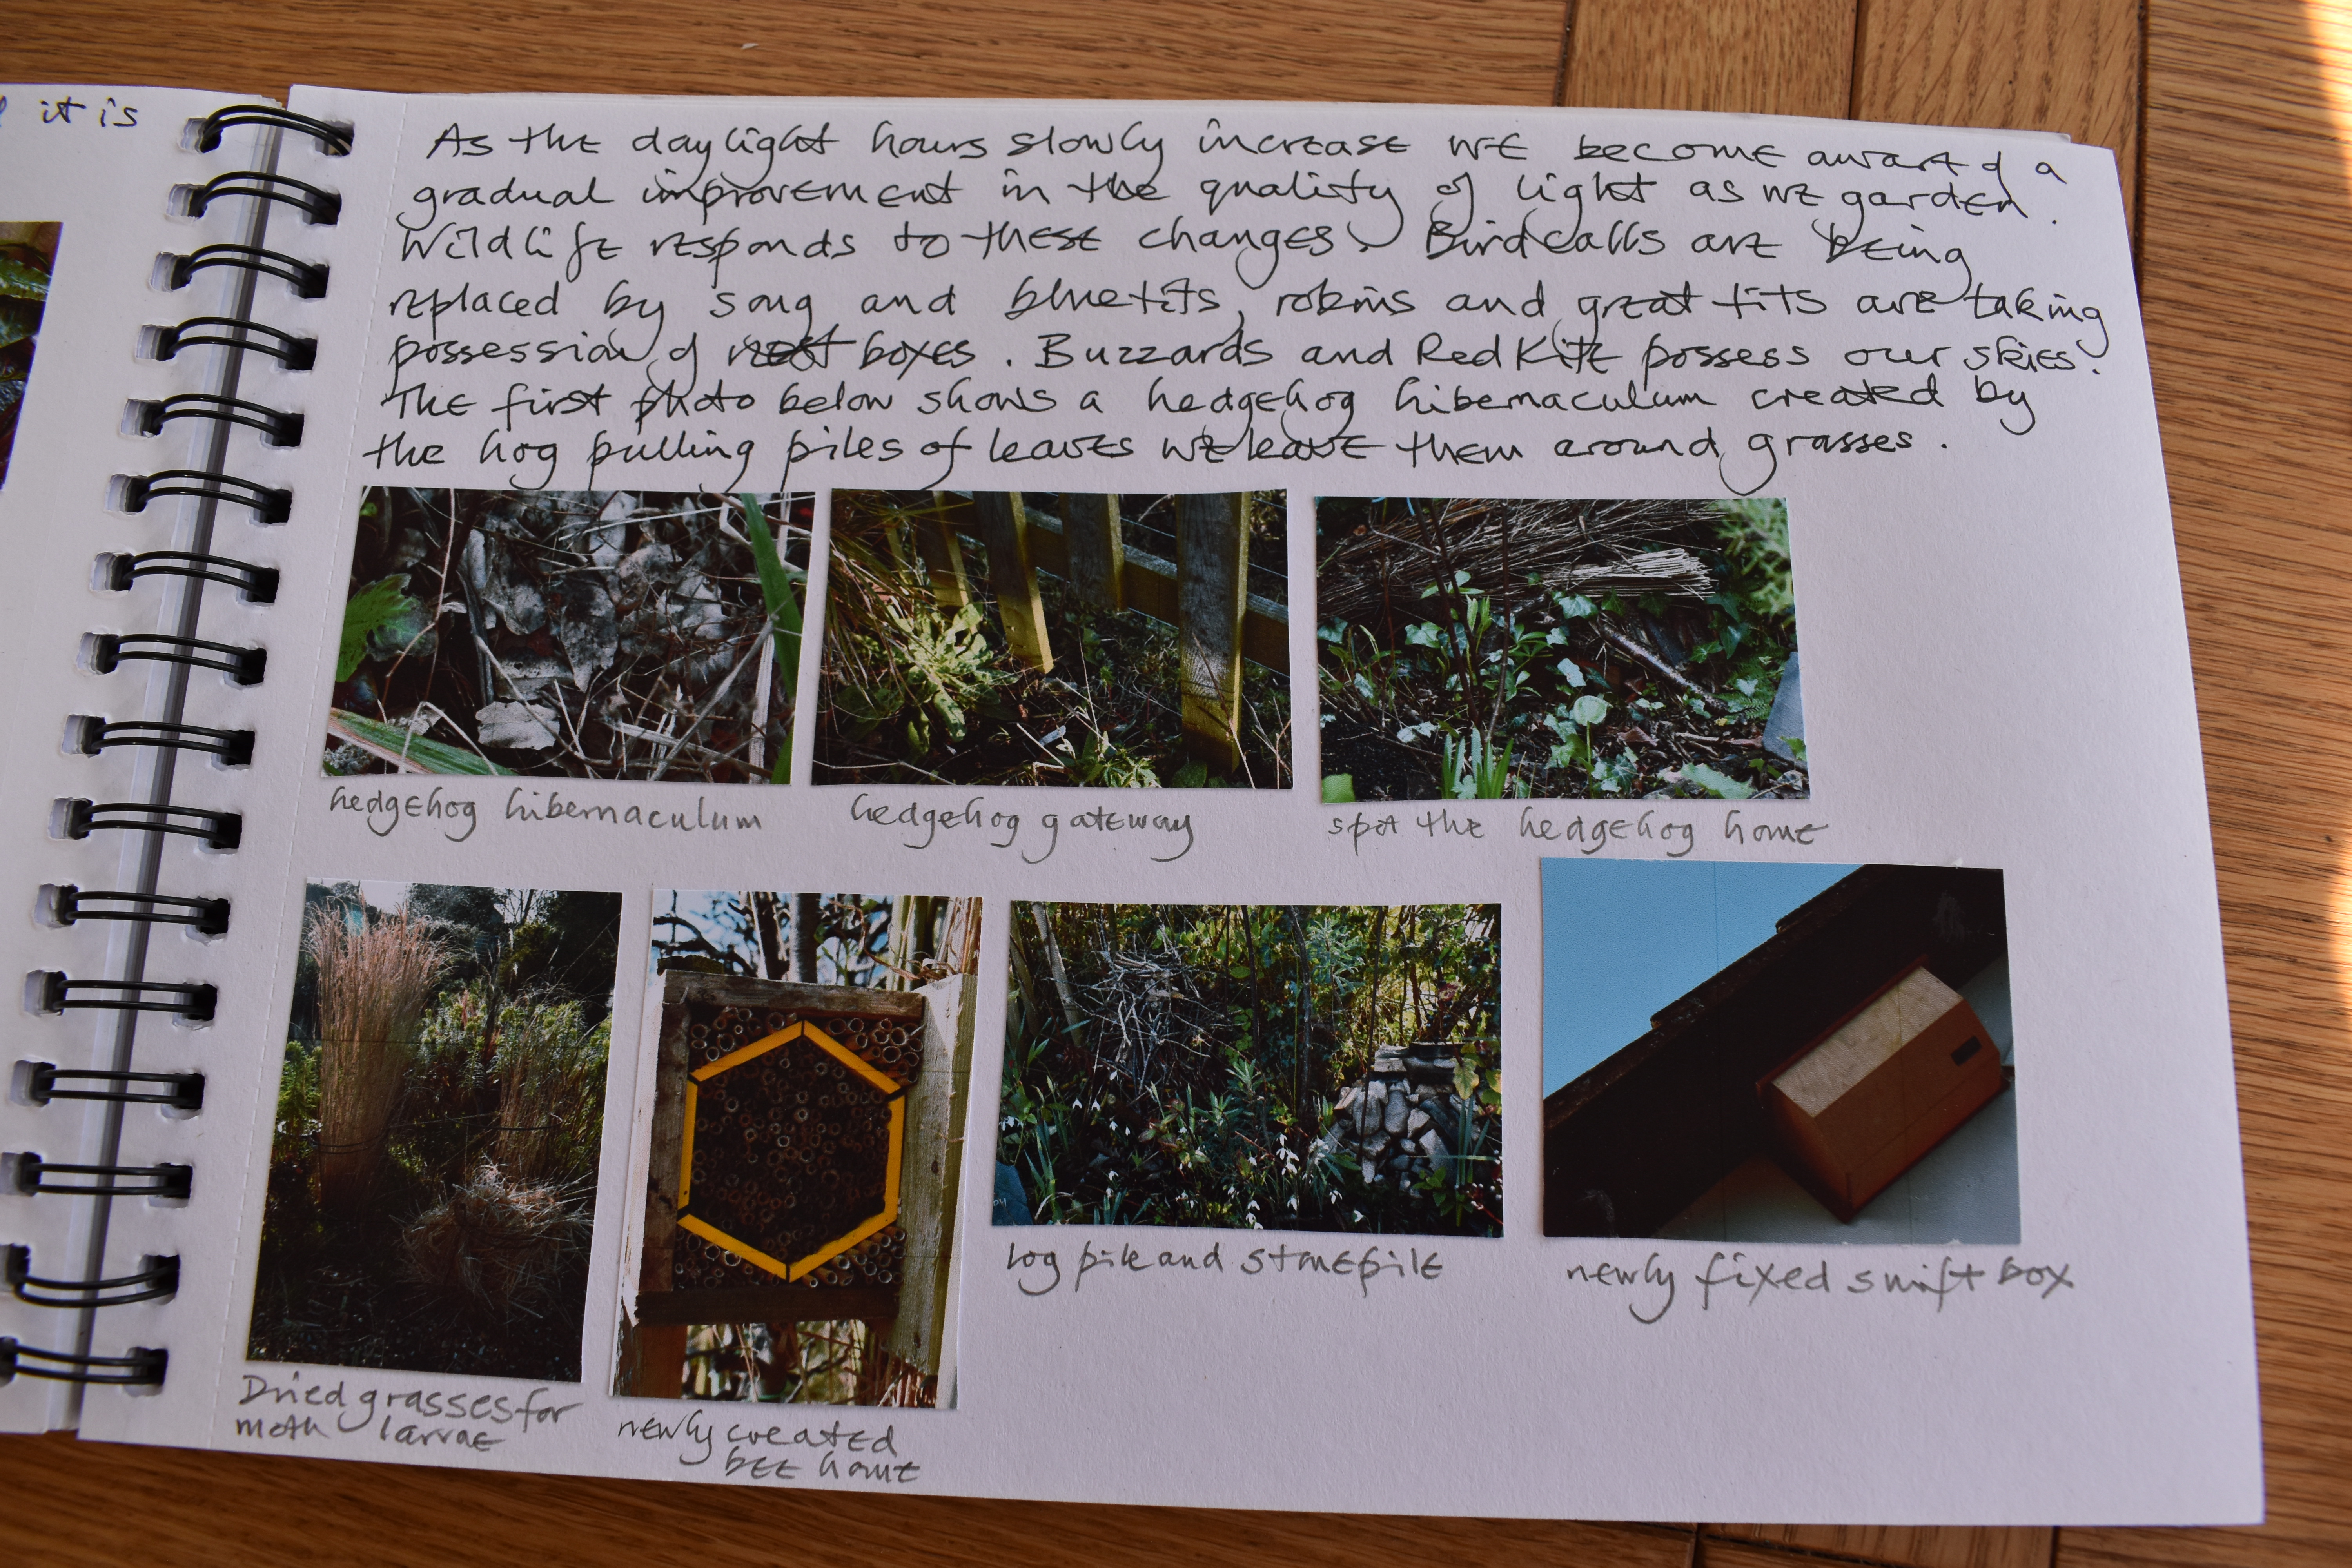 it is
As the daylight hours slowly increase we become aware of a
gradual improvement in the quality of light as we garden.
Wildlife responds to these changes. Bird calls are being
replaced by song and bluetits, robins and great tits are taking
possession of nest boxes. Buzzards and Red Kite possess our skies.
The first photo below shows a hedgehog hibernaculum created by
the hog pulling piles of leaves we leave them around grasses.
hedgehog hibernaculum
hedgehog gateway
spot the hedgehog home
Dried grasses for
moth larvae
newly created
bee home
log pile and stonepile
newly fixed swift box